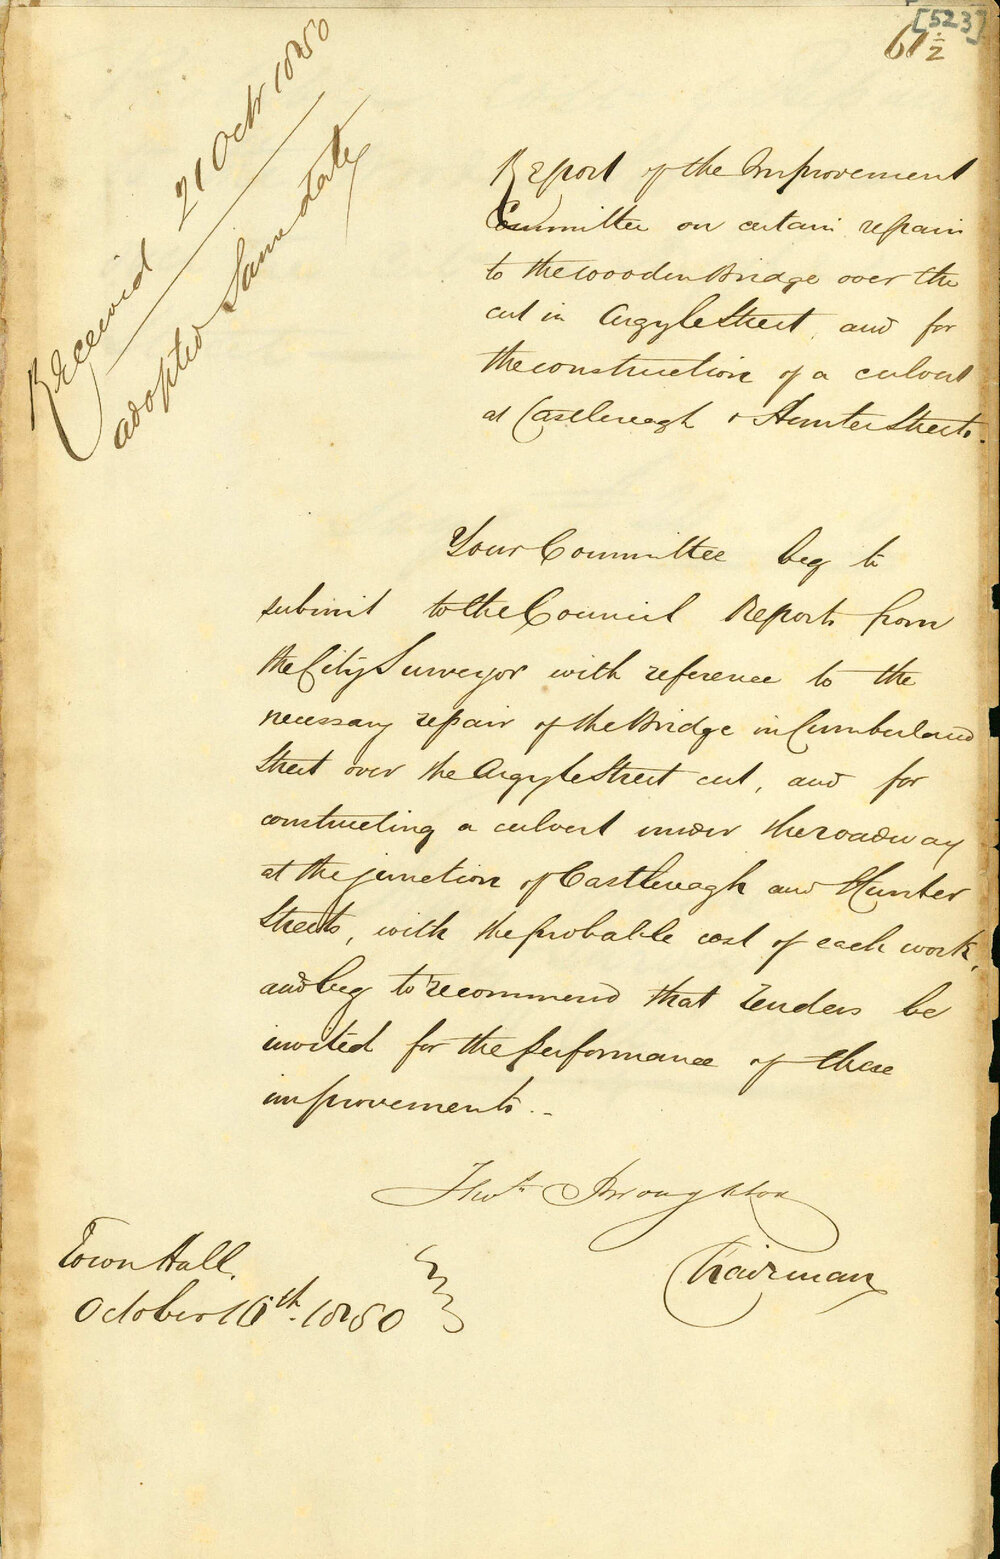 [523]
61 1/2
Received 21 Octr 1850
adopted Same date
Report of the Improvement
Committee on certain repairs
to the wooden Bridge over the
cut in Argyle Street, and for
the construction of a culvert
at Castlereagh & Hunter Streets.
Your Committee beg to
submit to the Council Reports from
the City Surveyor with reference to the
necessary repair of the Bridge in Cumberland
Street over the Argyle Street cut, and for
constructing a culvert under the roadway
at the junction of Castlereagh and Hunter
Streets, with the probable cost of each work,
and beg to recommend that Tenders be
invited for the performance of these
improvements.
Thos. Broughton
Chairman
Town Hall,
October 16th. 1850